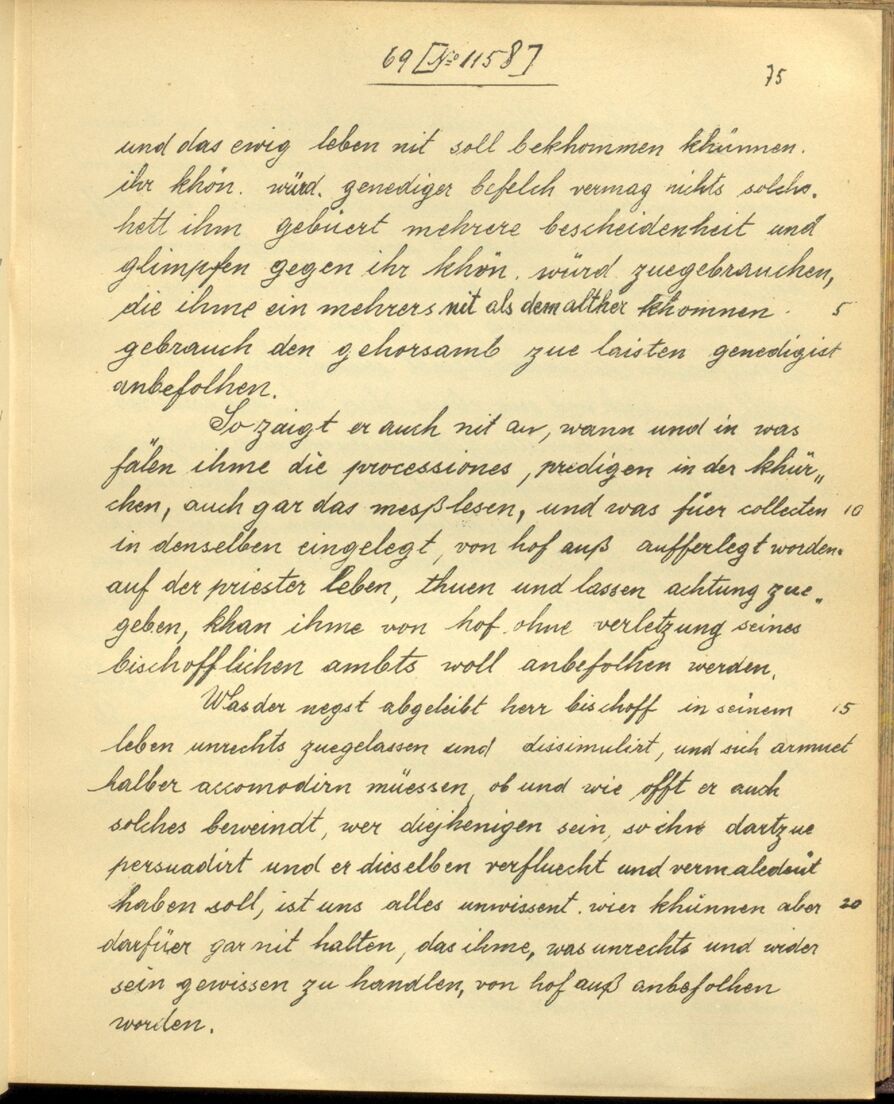 69 [№ 1158]
75
und das ewig leben nit soll bekhommen khünnen.
ihr khön. würd. genediger befelch vermag nichts solchs.
hett ihm gebüert mehrere bescheidenheit und
glimpfen gegen ihr khön. würd zuegebrauchen,
die ihme ein mehrers nit als dem alther khomnen 5
gebrauch den gehorsamb zue laisten genedigist
anbefolhen.
So zaigt er auch nit an, wann und in was
fälen ihme die processiones, predigen in der khür„
chen, auch gar das meßlesen, und was füer collecten 10
in denselben eingelegt, von hof auß aufferlegt worden.
auf der priester leben, thuen und lassen achtung zue„
geben, khan ihme von hof ohne verletzung seines
bischofflichen ambts woll anbefolhen werden.
Was der negst abgeleibt herr bischoff in seinem 15
leben unrechts zuegelassen und dissimulirt, und sich armuet
halber accomodirn müessen, ob und wie offt er auch
solches beweindt, wer diejhenigen sein, so ihn dartzue
persuadirt und er dieselben verfluecht und vermaledeüt
haben soll, ist uns alles unwissent. wier khünnen aber 20
darfüer gar nit halten, das ihme, was unrechts und wider
sein gewissen zu handlen, von hof auß anbefolhen
worden.